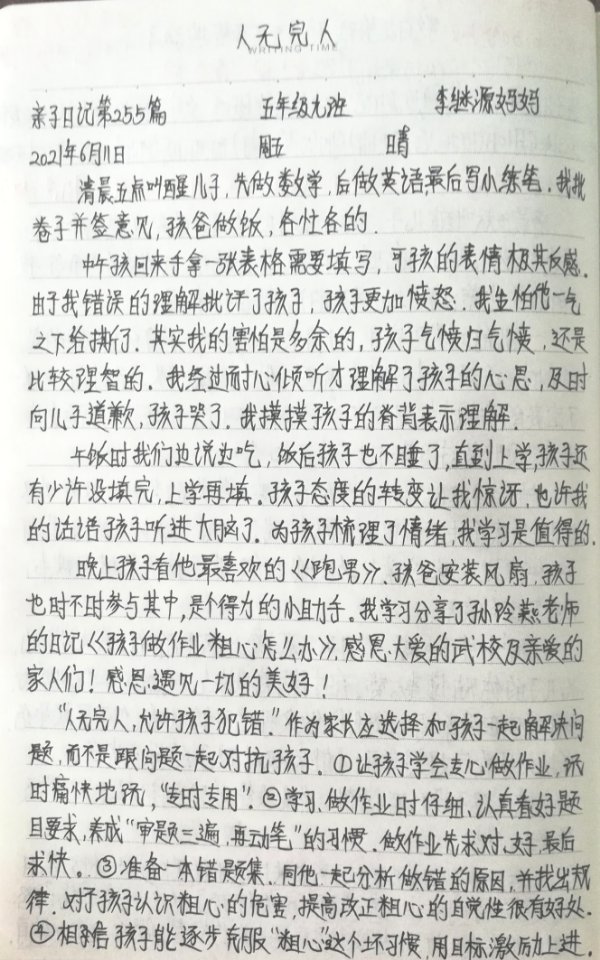 人无完人
WRITING TIME
亲子日记第255篇 五年级九班 李继源妈妈
2021年6月11日 周五 晴
清晨五点叫醒儿子，先做数学，后做英语，最后写小练笔。我批
卷子并签意见，孩爸做饭，各忙各的．
中午孩回来手拿一张表格需要填写，可孩的表情极其反感．
由于我错误的理解批评了孩子，孩子更加愤怒．我生怕他一气
之下给撕了．其实我的害怕是多余的，孩子气愤归气愤，还是
比较理智的．我经过耐心倾听才理解了孩子的心思，及时
向儿子道歉，孩子哭了．我摸摸孩子的脊背表示理解．
午饭时我们边说边吃，饭后孩子也不睡了，直到上学，孩子还
有少许没填完，上学再填．孩子态度的转变让我惊讶，也许我
的话语孩子听进大脑了．为孩子梳理了情绪，我学习是值得的．
晚上孩子看他最喜欢的《跑男》．孩爸安装风扇，孩子
也时不时参与其中，是个得力的小助手。我学习分享了孙玲燕老师
的日记《孩子做作业粗心怎么办》，感恩大爱的武校及亲爱的
家人们！感恩遇见一切的美好！
“人无完人，允许孩子犯错．”作为家长应选择和孩子一起解决问
题，而不是跟问题一起对抗孩子．①让孩子学会走心做作业，玩
时痛快地玩，“专时专用”．②学习、做作业时仔细、认真看好题
目要求，养成“审题三遍，再动笔”的习惯．做作业先求对、好，最后
求快。③准备一本错题集．同他一起分析做错的原因，并找出规
律．对于孩子认识粗心的危害，提高改正粗心的自觉性很有好处．
④相信孩子能逐步克服“粗心”这个坏习惯，用目标激励上进．